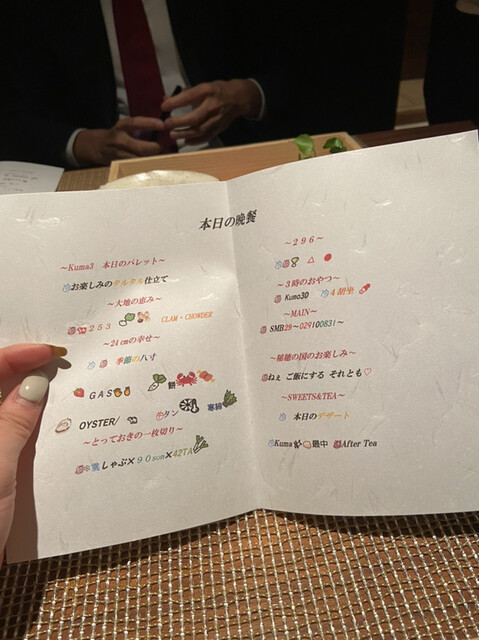 本日の晩餐
～Kuma3 本日のパレット～
お楽しみのタルタル仕立て
～大地の恵み～
２５３ CLAM・CHOWDER
～24㎝の幸せ～
季節の八寸
ＧＡＳ 餅
OYSTER/ タン 寒緋
～とっておきの一枚切り～
しゃぶ×９０sun×42TA
～２９６～
△
～３時のおやつ～
Kuma3D ４胡坐
～MAIN～
SMB29～029100831～
～稲穂の国のお楽しみ～
ねぇ ご飯にする それとも♡
～SWEETS&TEA～
本日のデザート
Kuma 最中 After Tea